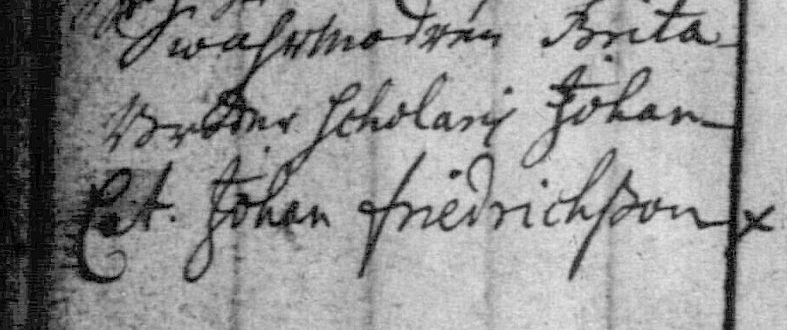 Swährmodren Brita
Broder Scholaris Johan
Johan friedrichsson x